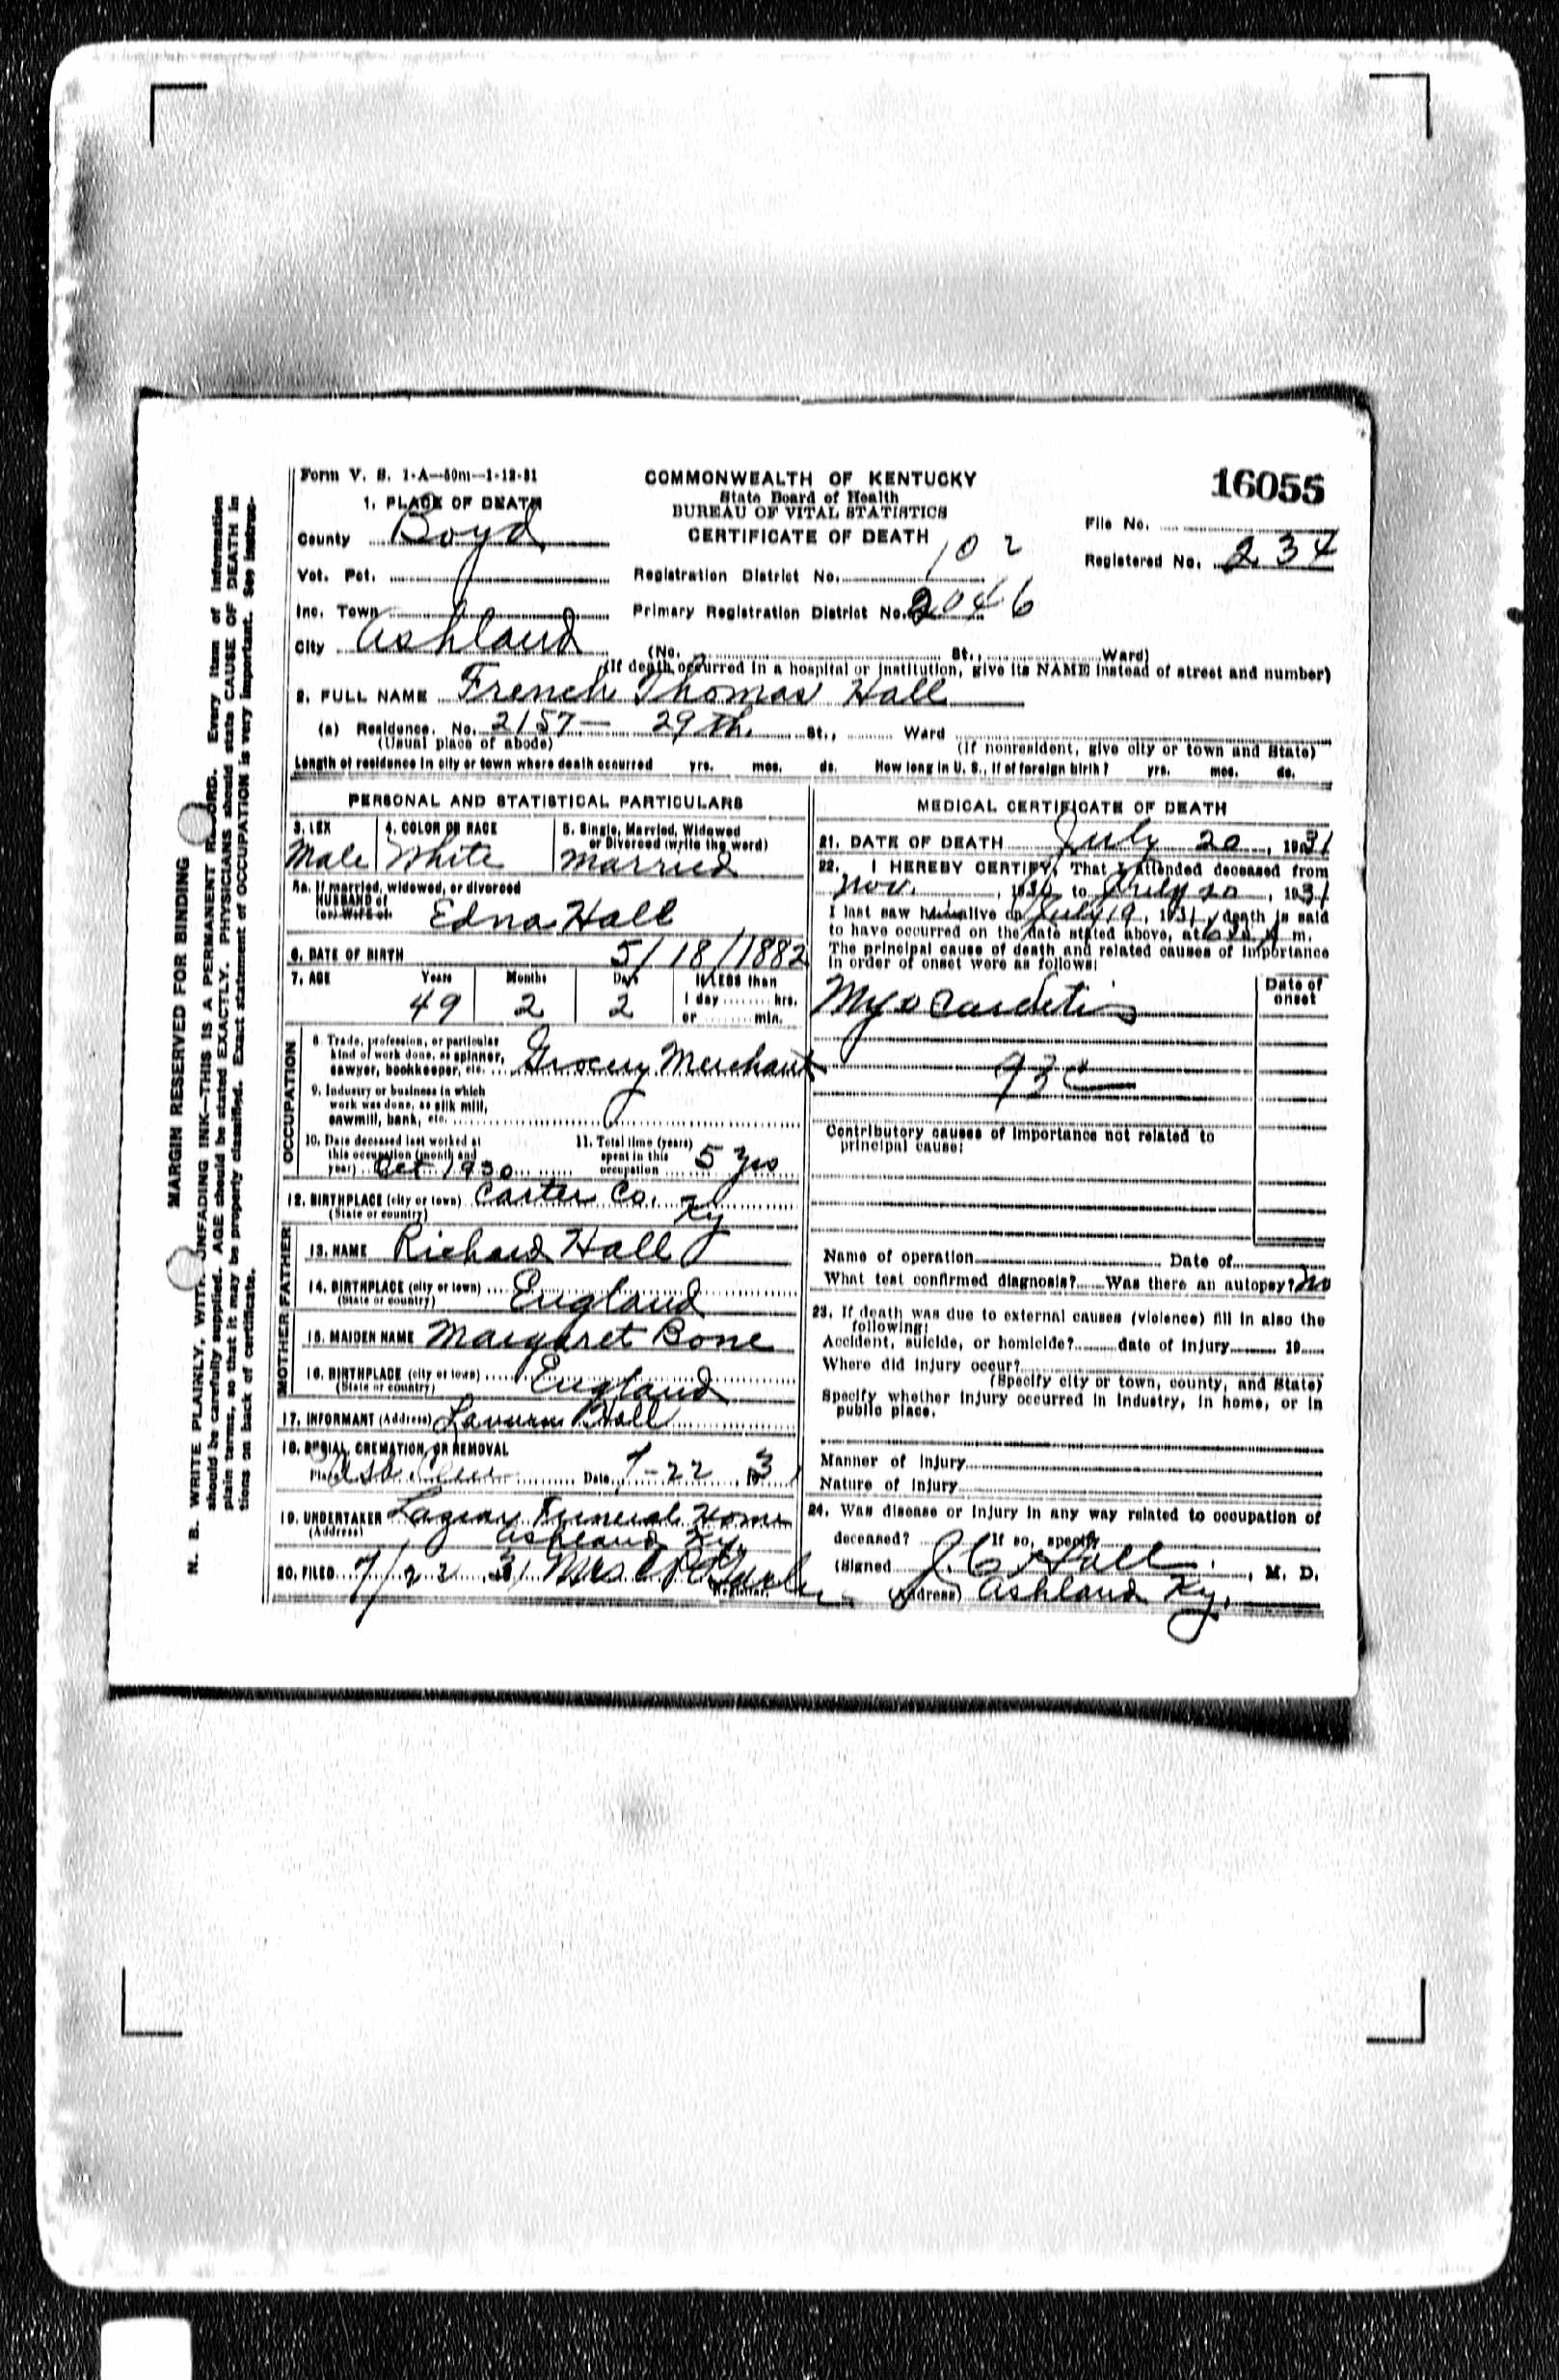 Form V. S. 1-A—50m—1-12-31
COMMONWEALTH OF KENTUCKY
State Board of Health
BUREAU OF VITAL STATISTICS
CERTIFICATE OF DEATH
16055
File No.
Registered No. 234
1. PLACE OF DEATH
County Boyd
Vot. Pct.
Registration District No. 102
Inc. Town
Primary Registration District No. 2046
City Ashland (No. St., Ward)
(If death occurred in a hospital or institution, give its NAME instead of street and number)
2. FULL NAME French Thomas Hall
(a) Residence. No. 2157— 29th. St., Ward
(Usual place of abode) (If nonresident, give city or town and State)
Length of residence in city or town where death occurred yrs. mos. ds. How long in U. S., if of foreign birth? yrs. mos. ds.
PERSONAL AND STATISTICAL PARTICULARS
3. SEX 4. COLOR OR RACE 5. Single, Married, Widowed
or Divorced (write the word)
Male White Married
5a. If married, widowed, or divorced
HUSBAND of
(or) WIFE of Edna Hall
6. DATE OF BIRTH 5/18/1882
7. AGE Years Months Days If LESS than
49 2 2 1 day hrs.
or min.
OCCUPATION
8. Trade, profession, or particular
kind of work done, as spinner,
sawyer, bookkeeper, etc. Grocery Merchant
9. Industry or business in which
work was done, as silk mill,
sawmill, bank, etc.
10. Date deceased last worked at
this occupation (month and
year) Oct 1930
11. Total time (years)
spent in this
occupation 5 yrs
12. BIRTHPLACE (city or town) Carter Co. Ky
(State or country)
FATHER
13. NAME Richard Hall
14. BIRTHPLACE (city or town) England
(State or country)
MOTHER
15. MAIDEN NAME Margaret Bone
16. BIRTHPLACE (city or town) England
(State or country)
17. INFORMANT (Address) Hall
18. BURIAL, CREMATION, OR REMOVAL
Place Date 7-22 1931
19. UNDERTAKER Lazear Funeral Home
(Address) Ashland Ky.
20. FILED 7/22 31 Mrs
Registrar.
MEDICAL CERTIFICATE OF DEATH
21. DATE OF DEATH July 20, 1931
22. I HEREBY CERTIFY, That I attended deceased from
Nov. , 1930 to July 20, 1931
I last saw him alive on July 19, 1931, death is said
to have occurred on the date stated above, at A m.
The principal cause of death and related causes of importance
in order of onset were as follows:
Date of
onset
Myocarditis
93c
Contributory causes of importance not related to
principal cause:
Name of operation Date of
What test confirmed diagnosis? Was there an autopsy? No
23. If death was due to external causes (violence) fill in also the
following:
Accident, suicide, or homicide? date of injury 19
Where did injury occur?
(Specify city or town, county, and State)
Specify whether injury occurred in industry, in home, or in
public place.
Manner of injury
Nature of injury
24. Was disease or injury in any way related to occupation of
deceased? If so, specify
(Signed J C Hall, M. D.
(Address) Ashland Ky.
MARGIN RESERVED FOR BINDING
N. B. WRITE PLAINLY, WITH UNFADING INK—THIS IS A PERMANENT RECORD. Every item of information
should be carefully supplied. AGE should be stated EXACTLY. PHYSICIANS should state CAUSE OF DEATH in
plain terms, so that it may be properly classified. Exact statement of OCCUPATION is very important. See instruc-
tions on back of certificate.